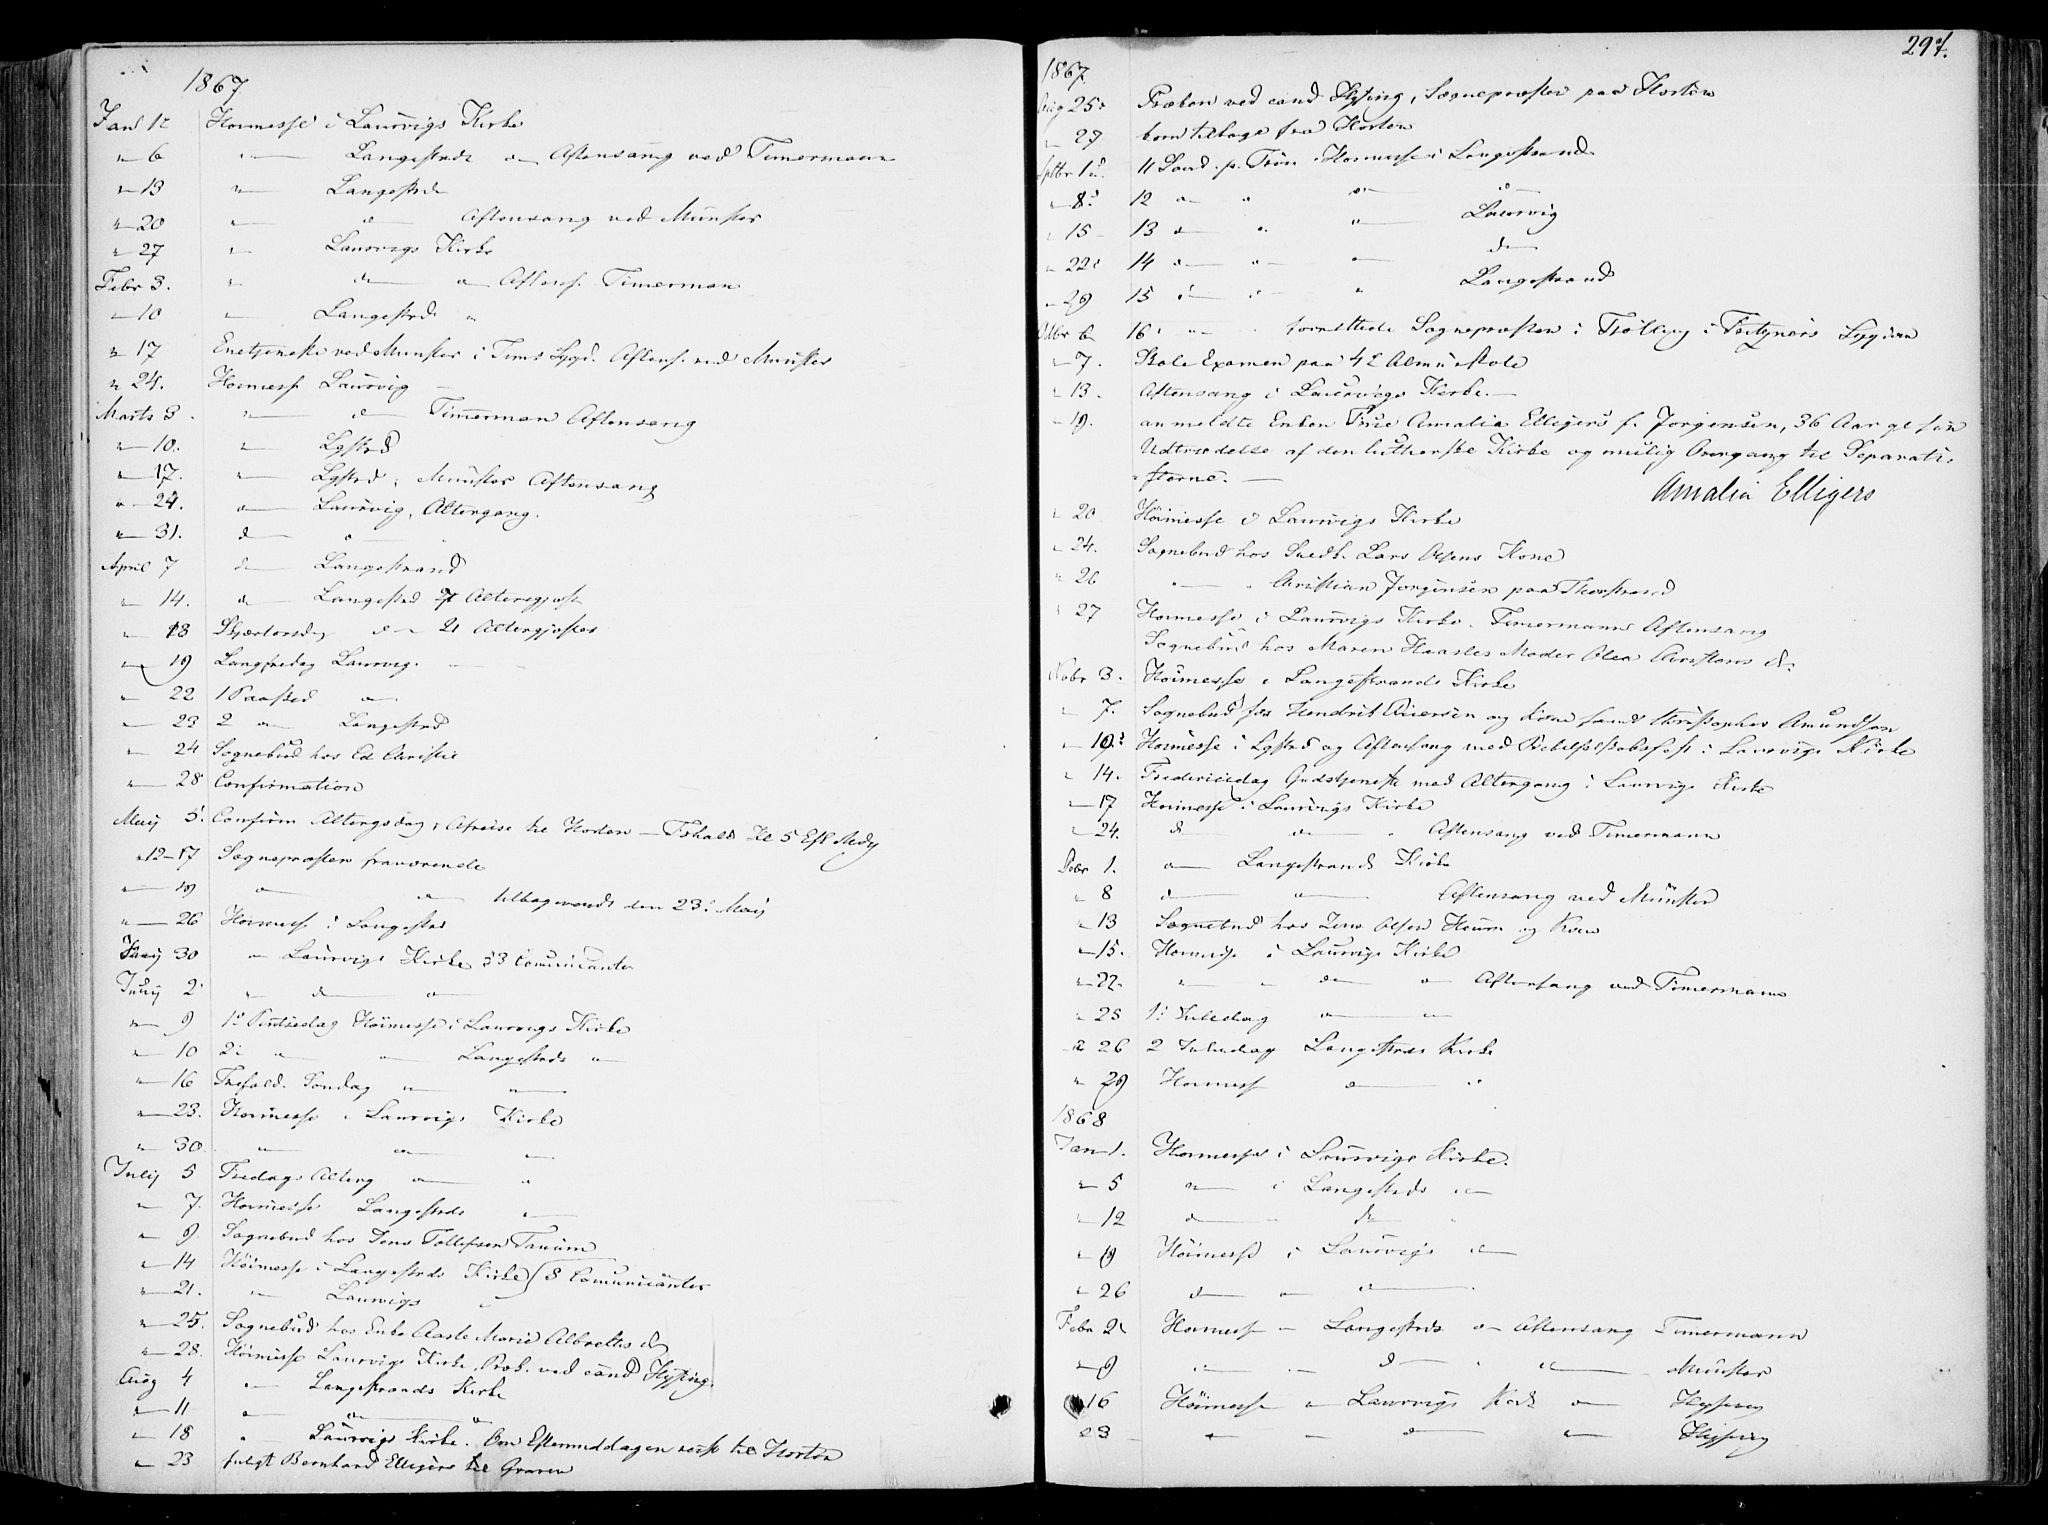 1867
Jan 1. Hoimesse i Laurvigs Kirke
" 6 " — Langestrds — Aftensang ved Timermann
" 13 " Langestrd
" 20 " — Aftensang ved Münster
" 27 " Laurvigs Kirke
Febr 3. " do — Aftens. Timerman
" 10 " Langestrds "
" 17 ved Münster i Aftens. ved Münster
" 24. Hoimesse Laurvig —
Marts 3. " do Timerman Aftensang
" 10. " Lgstrd
" 17. " Lgstrd, Münster Aftensang
" 24. — Laurvig, Altergang.
" 31. do "
April 7 do Langestrand
" 14. do Langestrd 7 Altergjæst
" 18 Skjærtorsdag do 21 Altergjæster
" 19 Langfredag Laurvig.
" 22 1 Paasked —
" 23 2 — Langestrd
" 24 Sognebud hos Ed Christie
" 28 Confirmation
May 5. Confirm Altergsdag, Afreise til Horten — Kl 5 Eft Mdg
" 12–17 Sognepræsten fraværende
" 19 — — tilbagevendt den 23. May
" 26 Hoimesse i Langestrd
May 30 — Laurvigs Kirke 53 Comunicanter
Juny 2 " do —
" 9 1. Pintsedag Höimesse i Laurvigs Kirke
" 10 2. " — Langestrds —
" 16 Trefold. Søndag " —
" 23. Hoimesse i Laurvigs Kirke
" 30 " — —
July 5 Fredags Alterg — "
" 7. Hoimesse Langestrds —
" 9. Sognebud hos Jens Tollefsen Tanum
" 14 Höimesse i Langestrds Kirke (8 Comunicanter
" 21. " Laurvigs "
" 25. Sognebud hos Enke Aaste Marie Albrette
" 28. Höimesse Laurvigs Kirke, Præk. ved cand Hysing.
Aug 4 " Langestrands Kirke
" 11 " do —
" 18 " Laurvigs Kirke. Om Eftermiddagen reist til Horten
" 23 fulgt Bernhard Elligers til Graven
297.
1867.
Aug 25. Præken ved cand Hysing, Sognepræsten paa Horten
" 27 kom tilbage fra Horten
Septbr 1. 11 Sønd. p. Trin. Hoimesse i Langestrand
" 8. 12 — " — do
" 15 13 do " — Laurvig
" 22. 14 do — — do
" 29 15 do — " Langestrand
Octbr 6 16. " — forrettede Sognepræsten i Tjölling i Sygdom
" 7. Skole Examen paa 4de Almueskole
" 13. Aftensang i Laurvigs Kirke. —
" 19. anmeldte Enken Frue Amalia Elligers f. Jørgensen, 36 Aar gl sin
Udtrædelse af den lutherske Kirke og mulig Overgang til Separati-
sterne. —
Amalia Elligers
" 20 Höimesse i Laurvigs Kirke
" 24. Sognebud hos Lars Olsens Kone
" 26 " — " Christian Jørgensen paa Thorstrand
" 27 Hoimesse i Laurvigs Kirke. Timermann Aftensang
Sognebud hos Maren Moder Olea
Nobr 3. Höimesse i Langestrands Kirke
" 7. Sognebud hos Hendrik Iversen og Kone samt Christopher Amundsen
" 10. Hoimesse i Lgstrd og Aftensang med Bibelselskabsfest i Laurvigs Kirke
" 14. Fredericiedag Gudstjeneste med Altergang i Laurvigs Kirke
" 17 Hoimesse i Laurvigs Kirke
" 24. do — " Aftensang ved Timermann
Decbr 1. — Langestrands Kirke
" 8 do — Aftensang ved Münster
" 13 Sognebud hos Jens Olsen og Kone
" 15. Hoimesse i Laurvigs Kirke
" 22 " " do — Aftensang ved Timermann
" 25 1. Juledag — —
" 26 2 Juledag Langestrds Kirke
" 29 Hoimesse do "
1868
Jan 1. Hoimesse i Laurvigs Kirke.
" 5 " i Langestrds —
" 12 do " do "
" 19 Höimesse i Laurvigs —
" 26 do — do
Febr 2. Hoimesse — Langestrds — Aftensang Timermann
" 9 " — do " — Münster
" 16 Höimesse " Laurvigs Kirk — Hysing
23 " — do — Hysing